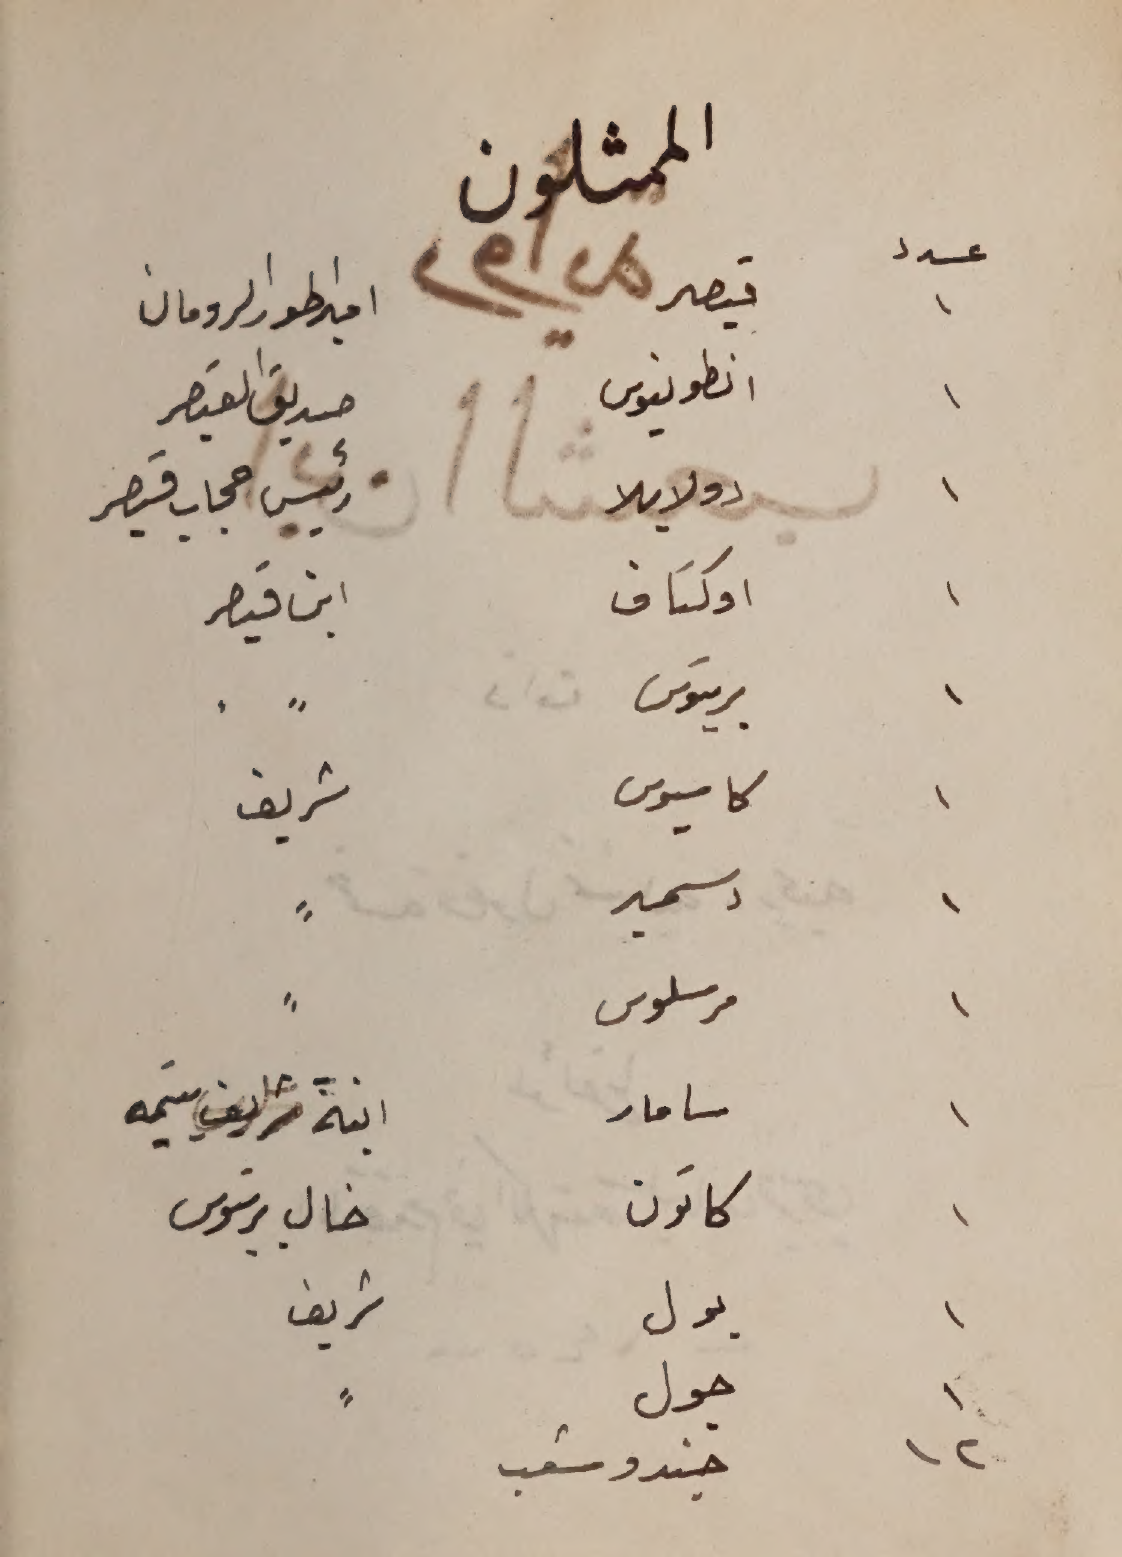 الممثلون
عدد
١ قيصر امبراطور الرومان
١ انطونيوس صديق القيصر
١ دولابلا رئيس حجاب قيصر
١ اوكتاف ابن قيصر
١ بريتوس " "
١ كاسيوس شريف
١ دسمير "
١ مرسلوس "
١ سامار ابنة يتيمه
١ كاتون خال بريتوس
١ بول شريف
١ جول "
١٢ جند وشعب